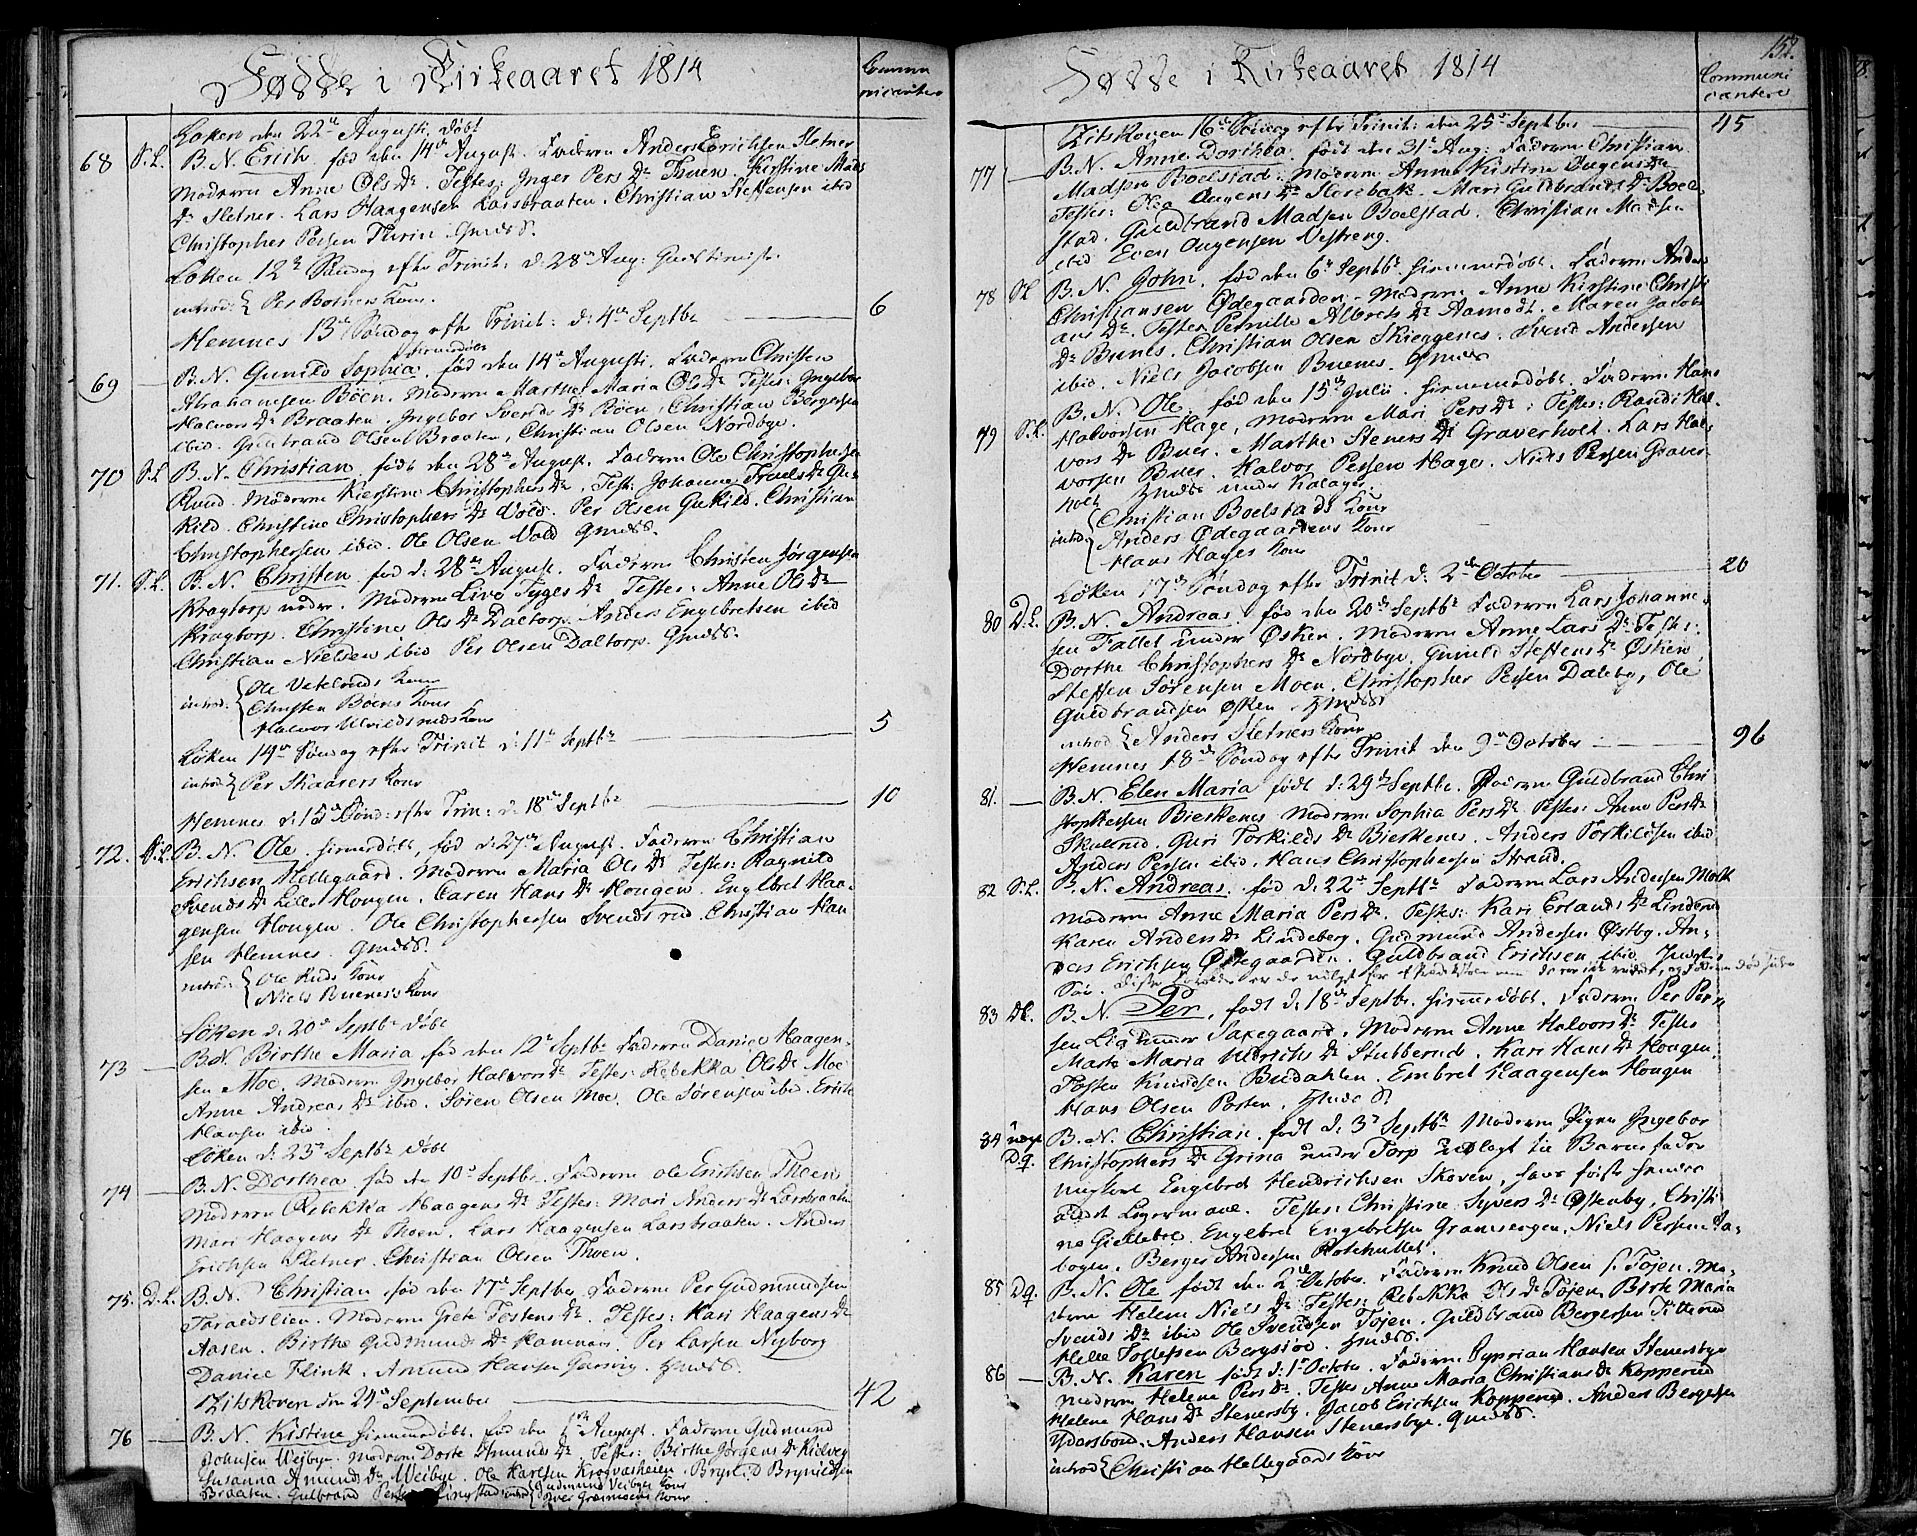 Fødde i Kirkeaaret 1814
Commu
nicantere
Løken den 22de Augusti døbt
68 S.L. B. N. Erich, fød den 14de August. Faderen Anders Erichsen Sletner
Moderen Anne Ols Dr. Testes: Inger Pers Dr Thoen. Kirstine Mads
Dr Sletner. Lars Haagensen Larsbraaten. Christian Steffensen ibid
Christopher Persen
Løken 12te Søndag efter Trinit: d: 28de Aug:
introd: { Per Botners Kone.
6
Hemnes 13de Søndag efter Trinit: d: 4de Septbr
hiemmedøbt
69 — B. N. Gunild Sophia, fød den 14de Augusti. Faderen Christen
Abrahamsen Bøen. Moderen Marthe Maria Ols Dr Testes: Ingebor
Halvors Dr Braaten. Ingebor Svends Dr Bøen, Christian Børgersen
ibid. Gulbrand Olsen Braaten, Christian Olsen Nordbye.
70 S.L B. N. Christian, født den 28de August. Faderen Ole Christophersen
Moderen Kierstine Christophers Dr. Test: Johanne Truels Dr Gu-
kild. Christine Christophers Dr Vold. Per Olsen Gukild. Christian
Christophersen ibid. Ole Olsen Vold
71. S.L. B. N. Christen, fød d: 28de August. Faderen Christen Jørgensen
Kragtorp nedre. Moderen Live Tyges Dr Testes: Anne Ols Dr
Kragtorp. Christine Ols Dr Daltorp. Anders Engebretsen ibid
Christian Nielsen ibid Per Olsen Daltorp.
introd: { Ole Kone
Christen Bøens Kone
Halvor Ulvildsruds Kone
5
Løken 14de Søndag efter Trinit d: 11te Septbr
introd { Per Skaarers Kone
10
Hemnes d: 15de Sønd: efter Trin: d: 18de Septbr
72. S.L. B. N. Ole, hiemmedøbt, fød d: 27de August. Faderen Christian
Erichsen Hellegaard. Moderen Maria Ols Dr Testes: Ragnild
Svends Dr Lille Hougen, Caren Hans Dr Hougen. Engebret Haa-
gensen Hougen. Ole Christophersen Svendsrud. Christian Han
sen Hemnes.
introd: { Ole Kone
Niels Buenes's Kone
Løken d: 20de Septbr døbt
73 — B. N. Birthe Maria fød den 12te Septbr Faderen Daniel Haagen-
sen Moe. Moderen Ingebor Halvors Dr Testes: Rebekka Ols Dr Moe
Anne Andreas Dr ibid. Søren Olsen Moe. Ole Sørensen ibid. Erich
Hansen ibid.
Løken d: 23de Septbr døbt
74 — B. N. Dorthea, fød den 10de Septbr. Faderen Ole Erichsen Thoen
Moderen Rebekka Haagens Dr Testes: Mari Anders Dr Larsbraaten
Mari Haagens Dr Thoen. Lars Haagensen Larsbraaten. Anders
Erichsen Sletner. Christian Olsen Thoen.
75. D.L. B. N. Christian, fød den 17de Septbr Faderen Per Gudmundsen
Taraldslien. Moderen Grete Torstens Dr. Testes: Kari Haagens Dr
Aasen. Birthe Gudmunds Dr Per Larsen Nyborg
Daniel Flink. Amund Hansen
42
Zitskoven den 24de September
76 — B. N. Kistine hiemmedøbt fød den August. Faderen Gudmund
Johnsen Weibye. Moderen Dorte Amunds Dr Testes: Birthe Jørgens Dr
Susanna Amunds Dr Weibye. Ole Karlsen Krogvasheien. Brynild Brynildsen
Braaten. Gulbrand Ringstad introd { Gudmund Veibyes Kone
Kone
Fødde i Kirkeaaret 1814
152.
Communi
cantere
Zitskoven 16de Søndag efter Trinit: den 25de Septbr
45
77 — B. N. Anne Dorthea, født den 31te Aug: Faderen Christian
Madsen Boelstad. Moderen Anne Kistine Augens Dr
Testes: Olea Augens Dr Mari Guldbrands Dr Boel-
stad. Guldbrand Madsen Boelstad. Christian Madsen
ibid Even Augensen Vestreng.
78 S.L B. N. John, fød den 6te Septbr hiemmedøbt. Faderen Anders
Christiansen Ødegaarden. Moderen Anne Kirstine Christi
ans Dr. Testes Pernille Albrets Dr Aamodt. Maren Jacobs
Dr Bunes. Christian Olsen Skieggenes. Svend Andersen
ibid. Niels Jacobsen Buenes.
79 S.L. B. N. Ole, fød den 15de Julii. hiemmedøbt. Faderen Hans
Halvorsen Hage, Moderen Mari Pers Dr. Testes: Randi Hal-
vors Dr Buer. Marthe Steners Dr Graverholt. Lars Hal-
vorsen Buer. Halvor Persen Hage. Niels Persen Graver
holt
introd { Christian Boelstads Kone
Anders Ødegaardens Kone
Hans Hages Kone
20
Løken 17de Søndag efter Trinit d: 2de October
80 D.L. B. N. Andreas, fød den 20de Septbr Faderen Lars Johanne-
sen Fallet under Øsken. Moderen Anne Lars Dr. Testes:
Dorthe Christophers Dr Nordbye. Gunild Steffens Dr Øsken
Steffen Sørensen Moen. Christopher Persen Daleby, Ole
Guldbrandsen Øsken.
introd { Anders Sletners Kone
96
Hemnes 18de Søndag efter Trinit den 9de October
81. — B. N. Elen Maria født d: 29de Septbr. Faderen Guldbrand Chri
stophersen Bierkenes Moderen Sophia Pers Dr Testes: Anne Pers Dr
Skullrud. Guri Torkilds Dr Bierkenes. Anders Torkildsen ibid
Anders Persen ibid. Hans Christophersen Strand.
82 S.L. B. N. Andreas, fød d: 22de Septbr Faderen Lars Andersen
Moderen Anne Maria Pers Dr. Testes: Kari Erlands Dr Linderud
Karen Anders Dr Lindeberg. Gudmund Andersen Østby. An-
ders Erichsen Ødegaarden. Guldbrand Erichsen ibid.
83 D.L. B. N. Per, født d: 18de Septbr. hiemmedøbt. Faderen Per Per
sen Saxegaard. Moderen Anne Halvors Dr. Testes
Marte Maria Didrichs Dr Stubberud. Kari Hans Dr Hougen.
Torsten Knudsen Budahlen. Embret Haagensen Hougen
Hans Olsen Porten.
84 uægt D.q. B. N. Christian, født d: 3de Septbr Moderen Pigen Ingebor
Christophers Dr Grina under Torp Udlagt til Barnefader
Engebret Hendrichsen Skoven, hans første hendes
andet Legermaal. Testes: Christine Syvers Dr Østenby, Christi
ne Engebret Engebretsen Niels Persen Ha-
bogen. Berger Andersen
85 D.q. B. N. Ole født den October. Faderen Knud Olsen Tøjen. Mo-
deren Helene Niels Dr Testes: Rebekka Ols Dr Tøjen. Birte Maria
Svends Dr ibid Ole Svendsen Tøjen. Guldbrand Bergersen
Helle Tollefsen Bergsiød.
86 — B. N. Karen født d: 1te October. Faderen Cyprian Hansen Stenersbye
Moderen Helene Pers Dr. Testes Anne Maria Christians Dr Kopperud
Helene Hans Dr Stenersby. Jacob Erichsen Kopperud. Anders Bergersen
Anders Hansen Stenersbye.
introd { Christian Hellegaards Kone